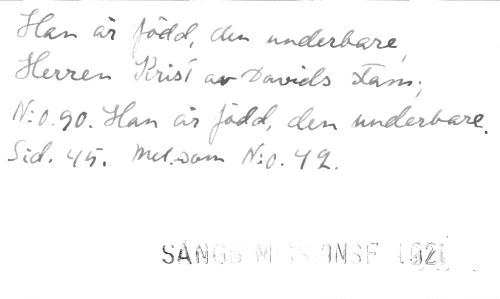 Han är född, den underbare,
Herren Krist av Davids stam;
N:o.90. Han är född, den underbare.
Sid. 45. Mel.som N:o. 42.
SÅNGB MISSIONSF 1921